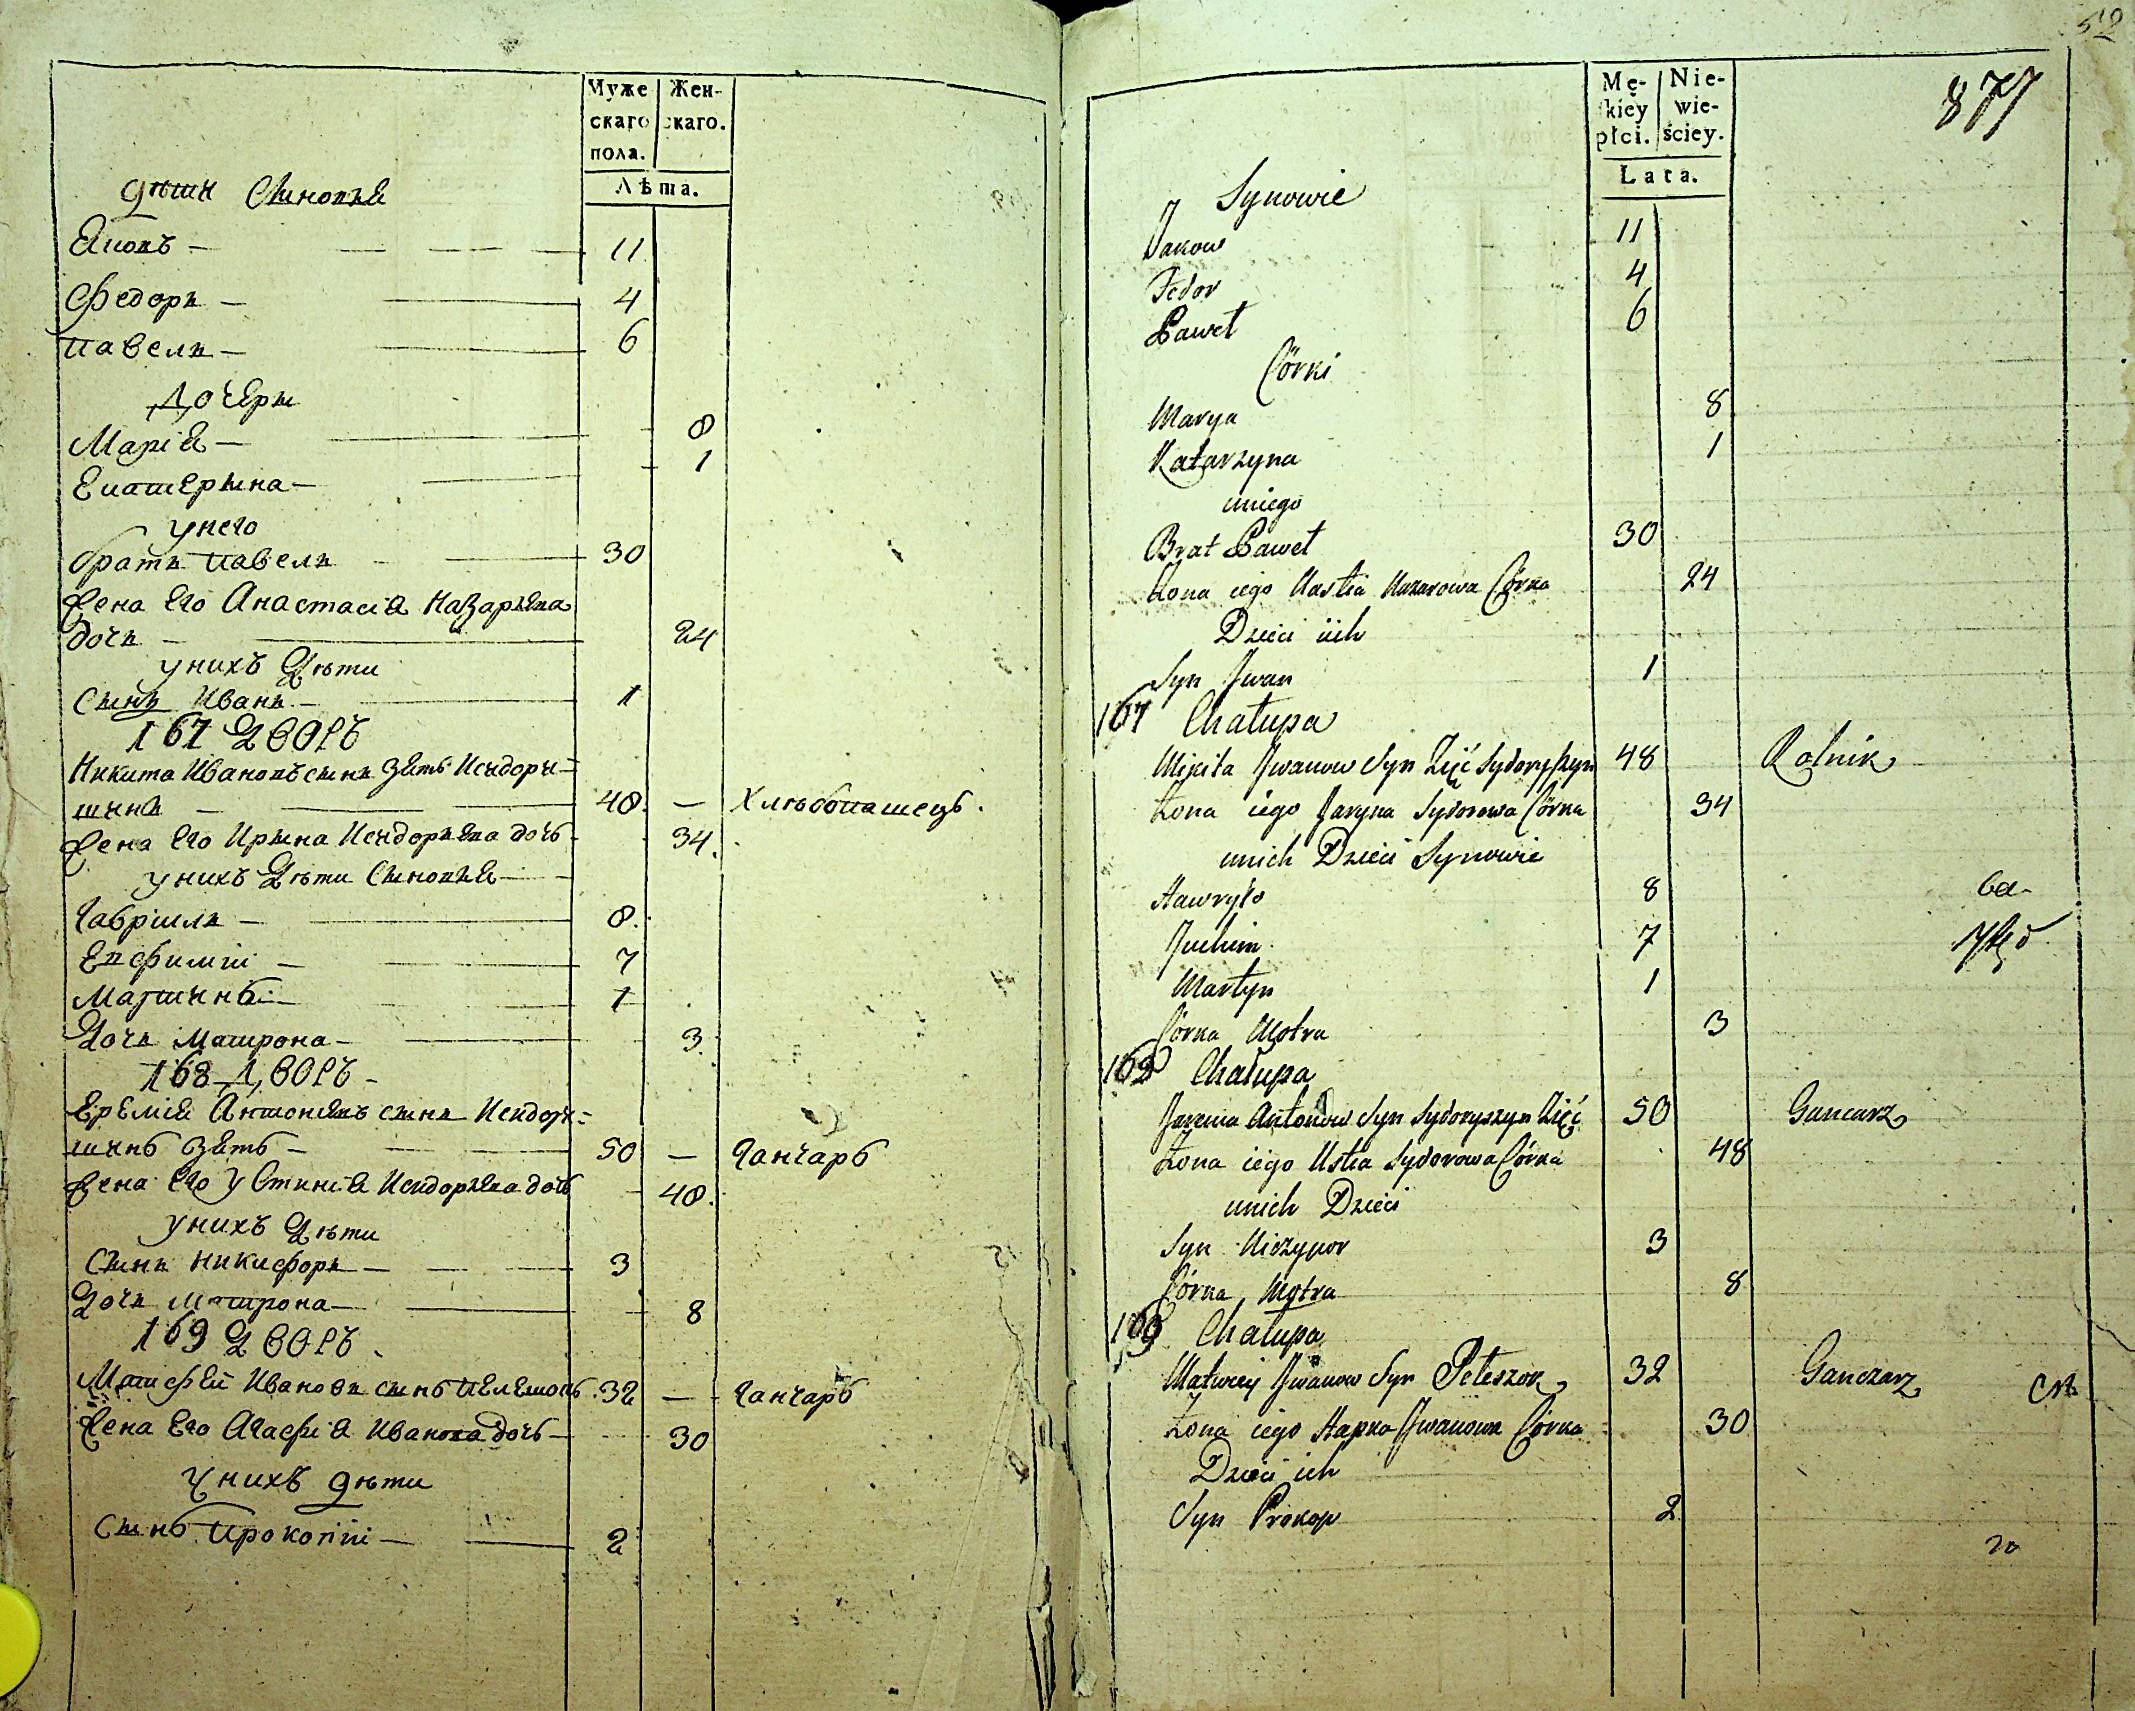 Муже скаго пола.
Жен- скаго.
Лѣта.
дѣти Сыновья
Яковъ — 11
Федоръ — 4
Павелъ — 6
Дочери
Марія — 8
Екатерына — 1
У него
братъ Павелъ 30
Жена Его Анастасія Назарьева
дочь — 24
У нихъ Дѣти
Сынъ Иванъ — 1
167 Дворъ
Никита Ивановъ сынъ Зять Исидоры-
шинъ — 48. — Хлѣбопашецъ.
Жена Его Ирына Исидорьева дочь 34.
У нихъ Дѣти Сыновья
Гавріилъ — 8.
Евфимій — 7
Мартинъ — 1
Дочь Матрона — 3.
168 Дворъ —
Еремія Антоновъ сынъ Исидоры-
шинъ Зять — 50 — Ганчаръ
Жена Его Устинія Исидорьева дочь 48.
У нихъ Дѣти
Сынъ Никифоръ — 3
Дочь Матрона — 8
169 Дворъ
Матфей Ивановъ сынъ Пелешокъ 32 — Ганчаръ
Жена Его Агафія Иванова дочь — 30
У нихъ дѣти
Сынъ Прокопій — 2
Mę- skiey płci.
Nie- wie- ściey.
Lata.
877
Synowie
Jakow 11
Fedor 4
Paweł 6
Córki
Marya 8
Katarzyna 1
uniego
Brat Paweł 30
Żona iego Nastia Nazarowa Córka 24
Dzieci iich
Syn Jwan 1
167 Chałupa
Mikita Jwanow Syn Zięć Sydoryszyn 48 Rolnik
Żona iego Jaryna Sydorowa Córka 34
unich Dzieci Synowie
Hawryło 8
Juchim 7
Martyn 1
Córka Motra 3
168 Chałupa
Jarema Antonow Syn Sydoryszyn Zięć 50 Gancarz
Żona iego Ustia Sydorowa Córka 48
unich Dzieci
Syn Niczypor 3
Córka Motra 8
169 Chałupa
Matwiey Jwanow Syn Peleszok 32 Ganczarz
Żona iego Hapka Jwanowa Córka 30
Dzieci ich
Syn Prokop 2